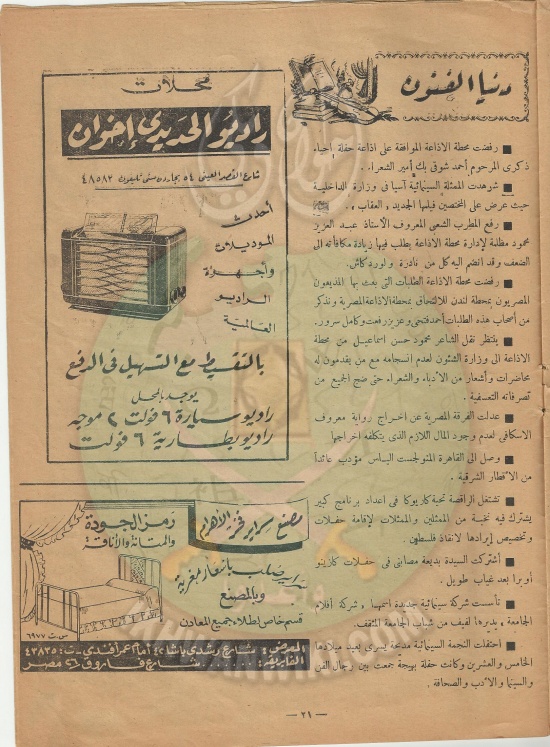 دنيا الفنون
■ رفضت محطة الاذاعة الموافقة على اذاعة حفلة إحياء
ذكرى المرحوم أحمد شوقى بك أمير الشعراء .
■ شوهدت الممثلة السينمائية آسيا فى وزارة الداخلية
حيث عرض على المختصين فيلمها الجديد « العقاب » .
■ رفع المطرب الشعبى المعروف الأستاذ عبد العزيز
محمود مظلمة لإدارة محطة الاذاعة يطلب فيها زيادة مكافآته الى
الضعف وقد انضم اليه كل من نادرة ولورد كاش .
■ رفضت محطة الاذاعة الطلبات التى بعث بها المذيعون
المصريون بمحطة لندن للالتحاق بمحطة الاذاعة المصرية ونذكر
من أصحاب هذه الطلبات أحمد فتحى وعزيز رفعت وكامل سرور .
■ ينتظر نقل الشاعر محمود حسن اسماعيل من محطة
الاذاعة الى وزارة الشئون لعدم انسجامه مع من يتقدمون له
محاضرات وأشعار من الأدباء والشعراء حتى ضج الجميع من
تصرفاته التعسفية .
■ عدلت الفرقة المصرية عن اخراج رواية معروف
الاسكافى لعدم وجود المال اللازم الذى يتكلفه اخراجها
■ وصل الى القاهرة المنولجست الياس مؤدب عائداً
من الأقطار الشرقية .
■ تشتغل الراقصة تحية كاريوكا فى اعداد برنامج كبير
يشترك فيه نخبة من الممثلين والممثلات لإقامة حفلات
وتخصيص إيرادها لانقاذ فلسطين .
■ أشتركت السيدة بديعة مصابنى فى حفلات كازينو
أوبرا بعد غياب طويل .
■ تأسست شركة سينمائية جديدة اسمها « شركة أفلام
الجامعة » يديرها لفيف من شباب الجامعة المثقف .
■ احتفلت النجمة السينمائية مديحة يسرى بعيد ميلادها
الخامس والعشرين وكانت حفلة بهيجة جمعت بين رجال الفن
والسينما والأدب والصحافة .
محلات
راديو الحديدى إخوان
شارع القصر العينى ٥٤ بجاردن سيتى تليفون ٤٨٥٨٢
أحدث
الموديلات
وأجهزة
الراديو
العالمية
بالتقسيط مع التسهيل فى الدفع
يوجد بالمحل
راديو سيارة ٦ ڤولت ٢ موجه
راديو بطارية ٦ ڤولت
مصنع سراير فخر الأهرام
رمز الجودة
والمتانة والأناقة
سراير صلب بأسعار مغرية
وبالمصنع
قسم خاص لطلاء جميع المعادن
س.ت ٦٩٧٧
المعرض : شارع رشدى باشا أمام عمر أفندى - ت : ٤٣٨٣٥
الفابريقة : ...... شارع فاروق ٥٦ مصر
— ٢١ —